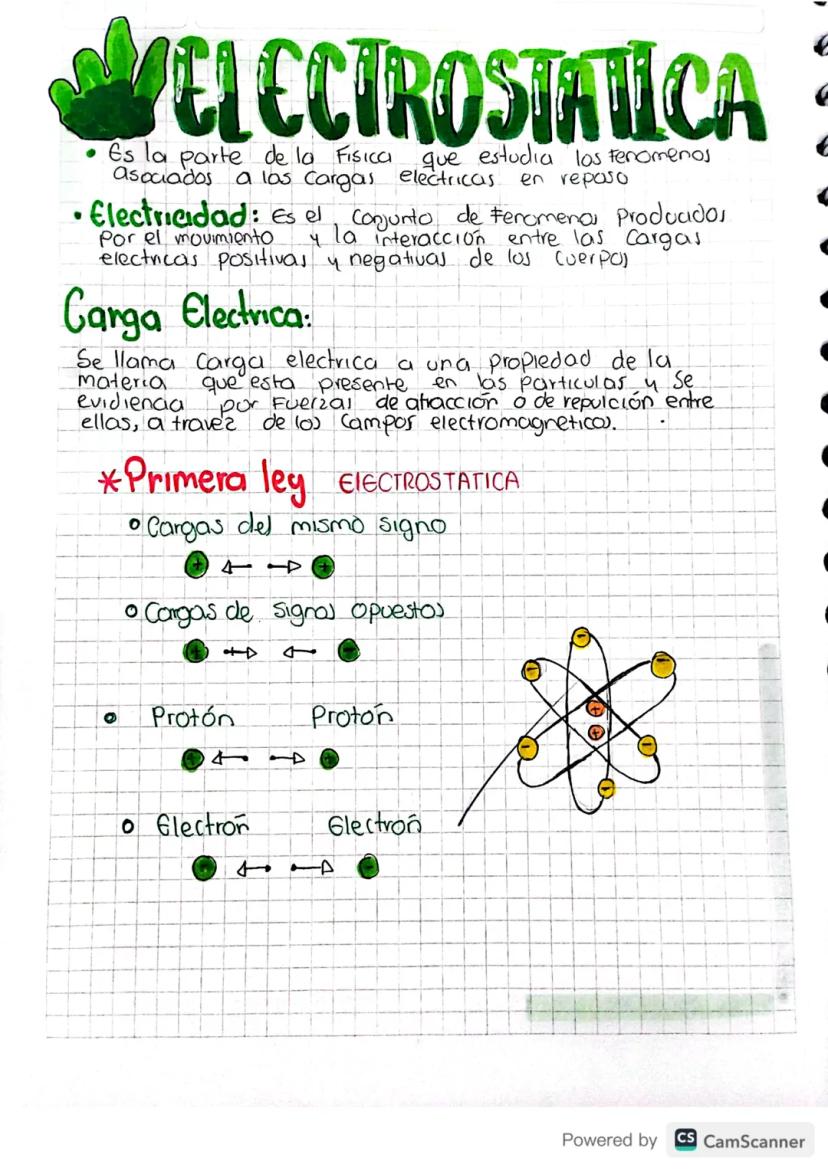 ELECTROSTATICA
• Es la parte de la Fisica que estudia los fenomenos
asociados a las Cargas electricas en reposo
• Electricidad: Es el conjunto de Fenomenos Producidos
Por el movimiento y la interacción entre las Cargas
electricas positivas y negativas de los Cuerpos
Carga Electrica:
Se llama Carga electrica a una propiedad de la
materia que esta presente en las particulas y Se
evidiencia por Fuerzas de atracción o de repulción entre
ellas, a travez de los Campos electromagneticos.
*Primera ley ElECTROSTATICA
Cargas del mismo signo
+ +
Cargas de signos opuestos
+ -
Protón Protón
+ +
Electrón Electrón
- -
+
+
Powered by CS CamScanner